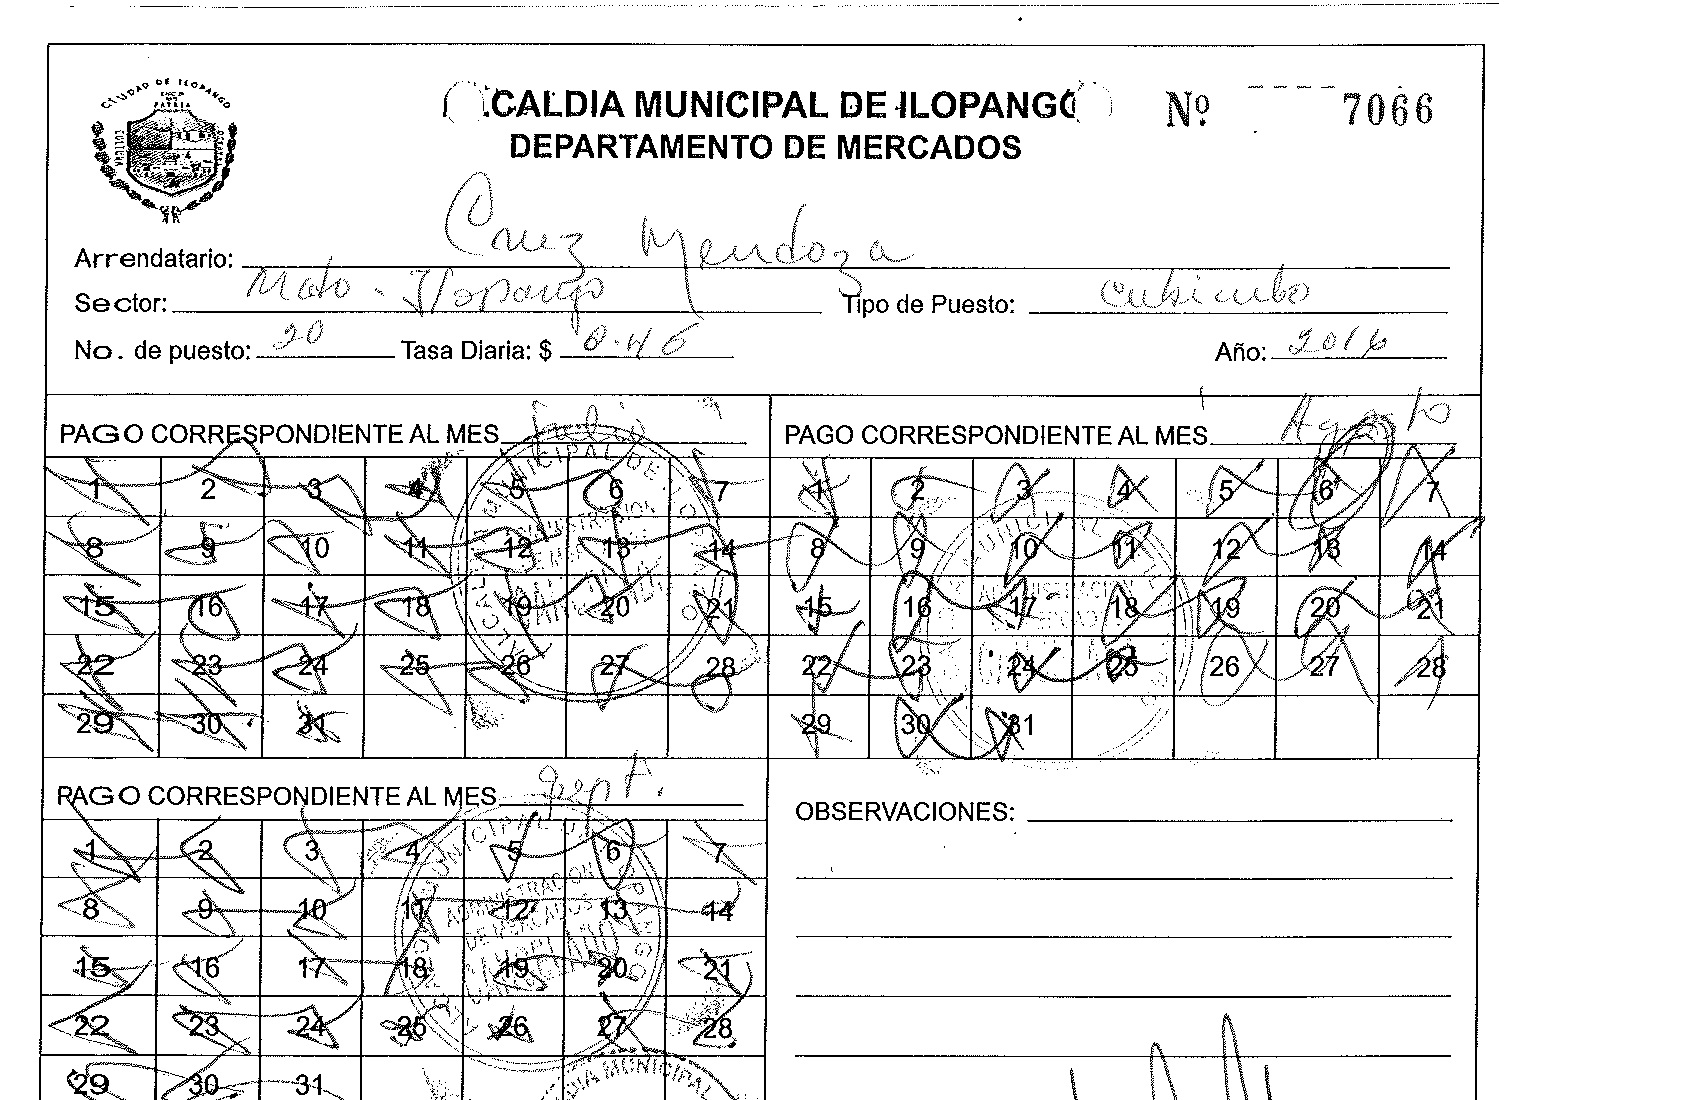 CIUDAD DE ILOPANGO
PATRIA
.CALDIA MUNICIPAL DE ILOPANGO
Nº 7066
DEPARTAMENTO DE MERCADOS
Arrendatario: Cruz Mendoza
Sector: Mdo. Ilopango Tipo de Puesto: Cubiculo
No. de puesto: 20 Tasa Diaria: $ 0.46 Año: 2016
PAGO CORRESPONDIENTE AL MES Julio
1 2 3 4 5 6 7
8 9 10 11 12 13 14
15 16 17 18 19 20 21
22 23 24 25 26 27 28
29 30 31
PAGO CORRESPONDIENTE AL MES Agosto
1 2 3 4 5 6 7
8 9 10 11 12 13 14
15 16 17 18 19 20 21
22 23 24 25 26 27 28
29 30 31
PAGO CORRESPONDIENTE AL MES Sept.
1 2 3 4 5 6 7
8 9 10 11 12 13 14
15 16 17 18 19 20 21
22 23 24 25 26 27 28
29 30 31
OBSERVACIONES:
ADMINISTRACION
DE MERCADOS
MUNICIPAL